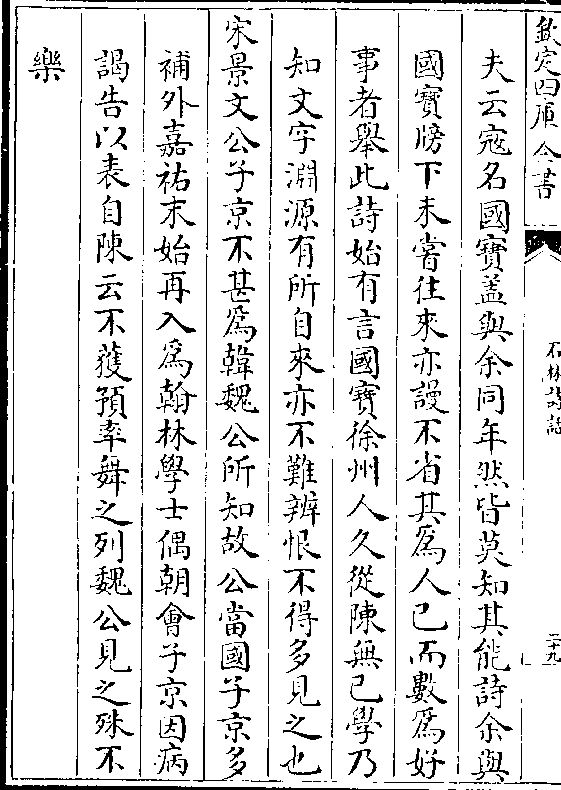 欽定四庫全書
石林詩話
二十九
夫云寇名國寳葢與余同年然皆莫知其能詩余與
國寳牓下未嘗往來亦謾不省其爲人已而數爲好
事者舉此詩始有言國寳徐州人久從陳無已學乃
知文字淵源有所自來亦不難辨恨不得多見之也
宋景文公子京不甚爲韓魏公所知故公當國子京多
補外嘉祐末始再入爲翰林學士偶朝會子京因病
謁告以表自陳云不獲預率舞之列魏公見之殊不
樂